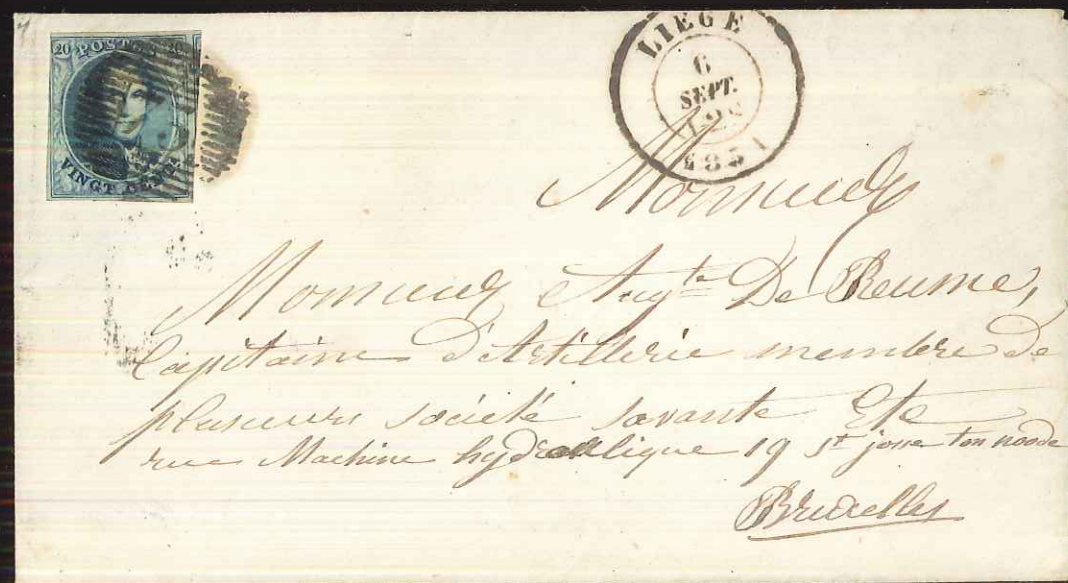 20 POSTES 20
VINGT CENTS
LIEGE
6
SEPT.
12S
1851
Monsieur
Monsieur Augte De Reume,
Capitaine d'Artillerie membre de
plusieurs société savante Etc
rue Machine hydraulique 19 St josse ten noode
Bruxelles